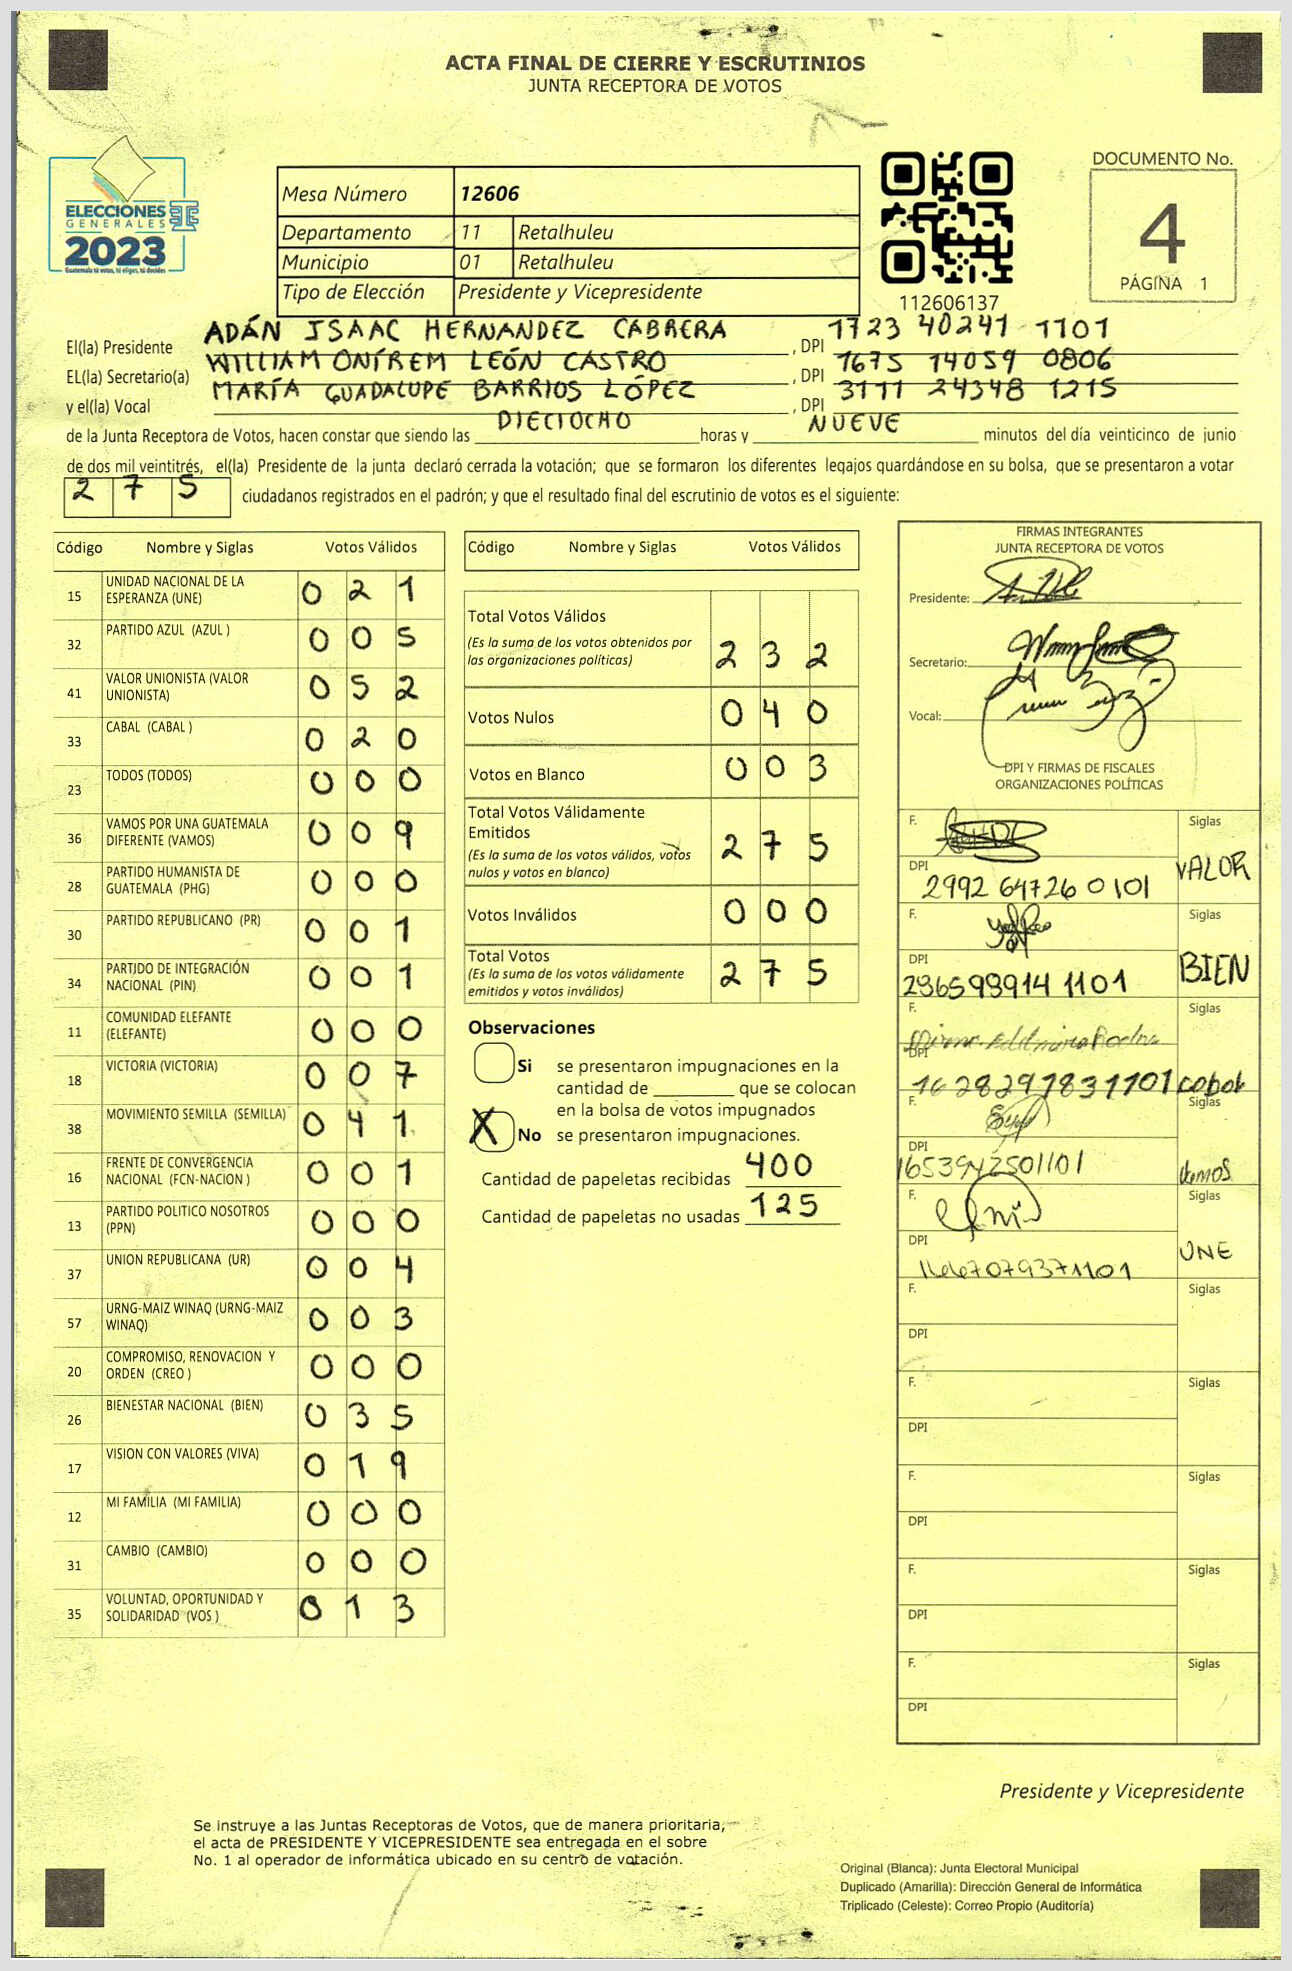 ACTA FINAL DE CIERRE Y ESCRUTINIOS
JUNTA RECEPTORA DE VOTOS
ELECCIONES
GENERALES
2023
Guatemala tú votas, tú eliges, tú decides
Mesa Número 12606
Departamento 11 Retalhuleu
Municipio 01 Retalhuleu
Tipo de Elección Presidente y Vicepresidente
112606137
DOCUMENTO No.
4
PÁGINA 1
El(la) Presidente ADÁN ISAAC HERNANDEZ CABRERA, DPI 1723 40241 1101
EL(la) Secretario(a) WILLIAM ONÍREM LEÓN CASTRO, DPI 1675 14059 0806
y el(la) Vocal MARÍA GUADALUPE BARRIOS LÓPEZ, DPI 3111 24348 1215
de la Junta Receptora de Votos, hacen constar que siendo las DIECIOCHO horas y NUEVE minutos del día veinticinco de junio
de dos mil veintitrés, el(la) Presidente de la junta declaró cerrada la votación; que se formaron los diferentes legajos quardándose en su bolsa, que se presentaron a votar
275 ciudadanos registrados en el padrón; y que el resultado final del escrutinio de votos es el siguiente:
Código Nombre y Siglas Votos Válidos
15 UNIDAD NACIONAL DE LA ESPERANZA (UNE) 0 2 1
32 PARTIDO AZUL (AZUL ) 0 0 5
41 VALOR UNIONISTA (VALOR UNIONISTA) 0 5 2
33 CABAL (CABAL ) 0 2 0
23 TODOS (TODOS) 0 0 0
36 VAMOS POR UNA GUATEMALA DIFERENTE (VAMOS) 0 0 9
28 PARTIDO HUMANISTA DE GUATEMALA (PHG) 0 0 0
30 PARTIDO REPUBLICANO (PR) 0 0 1
34 PARTIDO DE INTEGRACIÓN NACIONAL (PIN) 0 0 1
11 COMUNIDAD ELEFANTE (ELEFANTE) 0 0 0
18 VICTORIA (VICTORIA) 0 0 7
38 MOVIMIENTO SEMILLA (SEMILLA) 0 4 1
16 FRENTE DE CONVERGENCIA NACIONAL (FCN-NACION ) 0 0 1
13 PARTIDO POLITICO NOSOTROS (PPN) 0 0 0
37 UNION REPUBLICANA (UR) 0 0 4
57 URNG-MAIZ WINAQ (URNG-MAIZ WINAQ) 0 0 3
20 COMPROMISO, RENOVACION Y ORDEN (CREO ) 0 0 0
26 BIENESTAR NACIONAL (BIEN) 0 3 5
17 VISION CON VALORES (VIVA) 0 1 9
12 MI FAMILIA (MI FAMILIA) 0 0 0
31 CAMBIO (CAMBIO) 0 0 0
35 VOLUNTAD, OPORTUNIDAD Y SOLIDARIDAD (VOS ) 0 1 3
Código Nombre y Siglas Votos Válidos
Total Votos Válidos
(Es la suma de los votos obtenidos por
las organizaciones políticas) 2 3 2
Votos Nulos 0 4 0
Votos en Blanco 0 0 3
Total Votos Válidamente
Emitidos
(Es la suma de los votos válidos, votos
nulos y votos en blanco) 2 7 5
Votos Inválidos 0 0 0
Total Votos
(Es la suma de los votos válidamente
emitidos y votos inválidos) 2 7 5
Observaciones
Si se presentaron impugnaciones en la
cantidad de ________ que se colocan
en la bolsa de votos impugnados
X No se presentaron impugnaciones.
Cantidad de papeletas recibidas 400
Cantidad de papeletas no usadas 125
FIRMAS INTEGRANTES
JUNTA RECEPTORA DE VOTOS
Presidente:
Secretario:
Vocal:
DPI Y FIRMAS DE FISCALES
ORGANIZACIONES POLÍTICAS
F. Siglas
VALOR
DPI
2992 64726 0101
F. Siglas
BIEN
DPI
2365939141101
F. Siglas
DPI
1628297831101 cabal
F. Siglas
DPI
1653942501101 Vamos
F. Siglas
UNE
DPI
1667079371101
F. Siglas
DPI
F. Siglas
DPI
F. Siglas
DPI
F. Siglas
DPI
F. Siglas
DPI
Presidente y Vicepresidente
Se instruye a las Juntas Receptoras de Votos, que de manera prioritaria,
el acta de PRESIDENTE Y VICEPRESIDENTE sea entregada en el sobre
No. 1 al operador de informática ubicado en su centro de votación.
Original (Blanca): Junta Electoral Municipal
Duplicado (Amarilla): Dirección General de Informática
Triplicado (Celeste): Correo Propio (Auditoría)